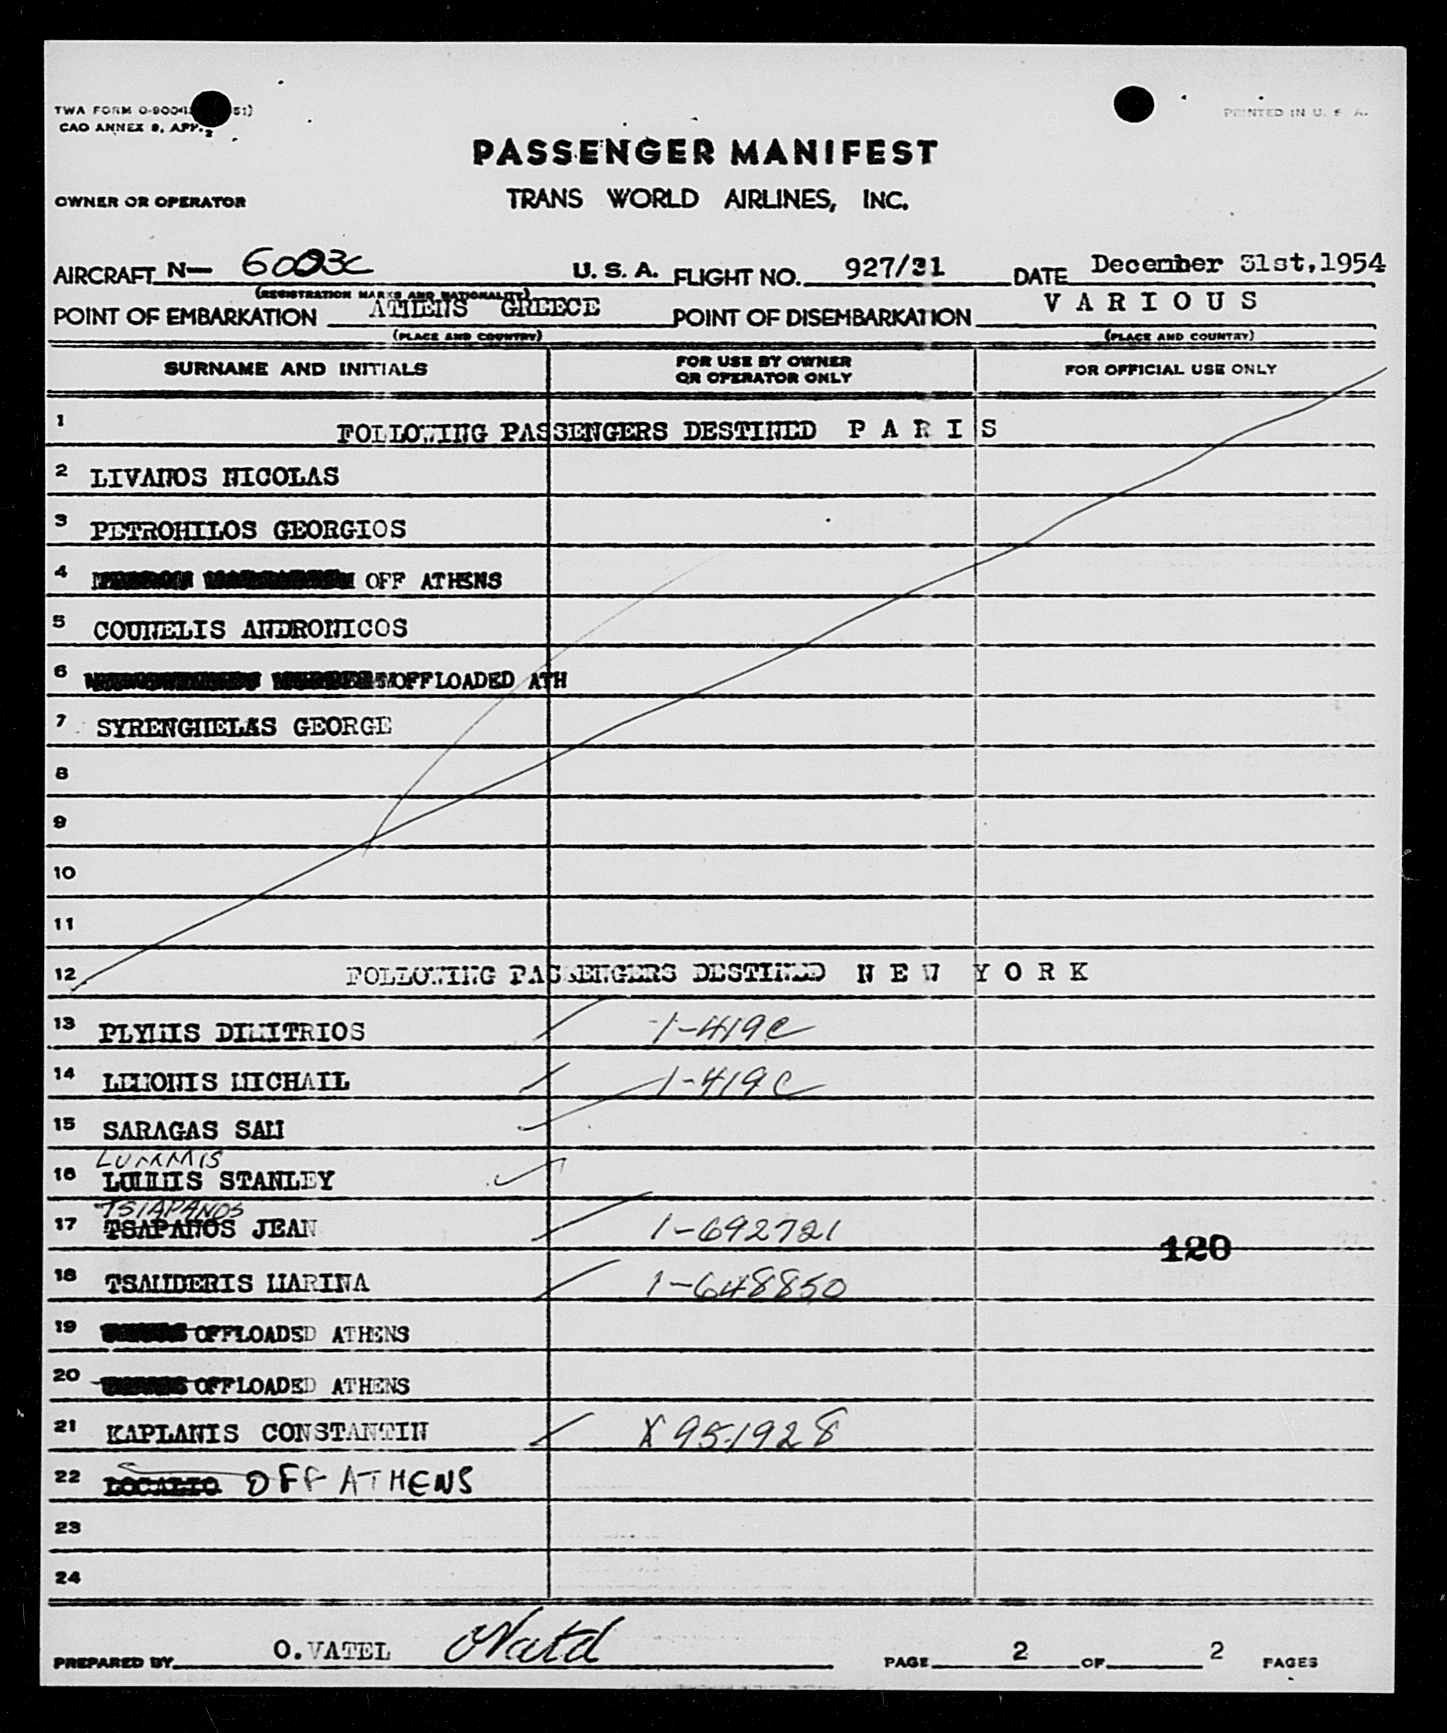 TWA FORM O-900 51)
CAO ANNEX 9, APP. 2
PRINTED IN U. S. A.
PASSENGER MANIFEST
OWNER OR OPERATOR TRANS WORLD AIRLINES, INC.
AIRCRAFT N— 6003C U. S. A. FLIGHT NO. 927/31 DATE December 31st, 1954
(REGISTRATION MARKS AND NATIONALITY)
POINT OF EMBARKATION ATHENS GREECE POINT OF DISEMBARKATION V A R I O U S
(PLACE AND COUNTRY) (PLACE AND COUNTRY)
SURNAME AND INITIALS FOR USE BY OWNER OR OPERATOR ONLY FOR OFFICIAL USE ONLY
1 FOLLOWING PASSENGERS DESTINED P A R I S
2 LIVANOS NICOLAS
3 PETROHILOS GEORGIOS
4 OFF ATHENS
5 COUNELIS ANDRONICOS
6 OFFLOADED ATH
7 SYRENGHELAS GEORGE
8
9
10
11
12 FOLLOWING PASSENGERS DESTINED N E W Y O R K
13 PLYMIS DIMITRIOS 1-419C
14 LEMONIS MICHAIL 1-419C
15 SARAGAS SAM
LUMMIS
16 LUMMIS STANLEY
TSIAPANOS
17 TSAPANOS JEAN 1-692721
120
18 TSAMDERIS MARINA 1-648850
19 OFFLOADED ATHENS
20 OFFLOADED ATHENS
21 KAPLANIS CONSTANTIN X 951928
22 OFF ATHENS
23
24
PREPARED BY O. VATEL OVatel PAGE 2 OF 2 PAGES